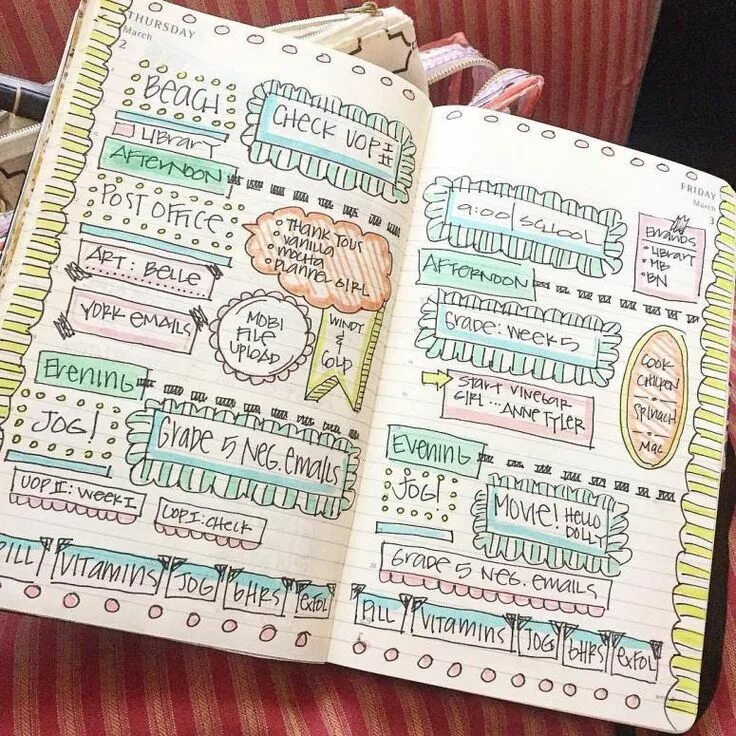 THURSDAY
March
2
BEACH
LIBRARY
CHECK UOP II
#
AFTERNOON
POST OFFICE
• THANK YOUS
• VANILLA
• MOCHA
• PLANNER GIRL
ART: BELLE
YORK EMAILS
MOBI
FILE
UPLOAD
WINDY
&
COLD
EVENING
JOG!
GRADE 5 NEG. EMAILS
UOP II: WEEK 1
UOP I: CHECK
PILL
VITAMINS
JOG
6HRS
EXFOL
FRIDAY
March
3
9:00 SCHOOL
ERRANDS
• LIBRARY
• MB
• BN
AFTERNOON
GRADE: WEEK 5
START VINEGAR
GIRL...ANNE TYLER
COOK
CHICKEN
• SPINACH
• MAC
EVENING
JOG!
MOVIE! HELLO
DOLLY
GRADE 5 NEG. EMAILS
PILL
VITAMINS
JOG
6HRS
EXFOL